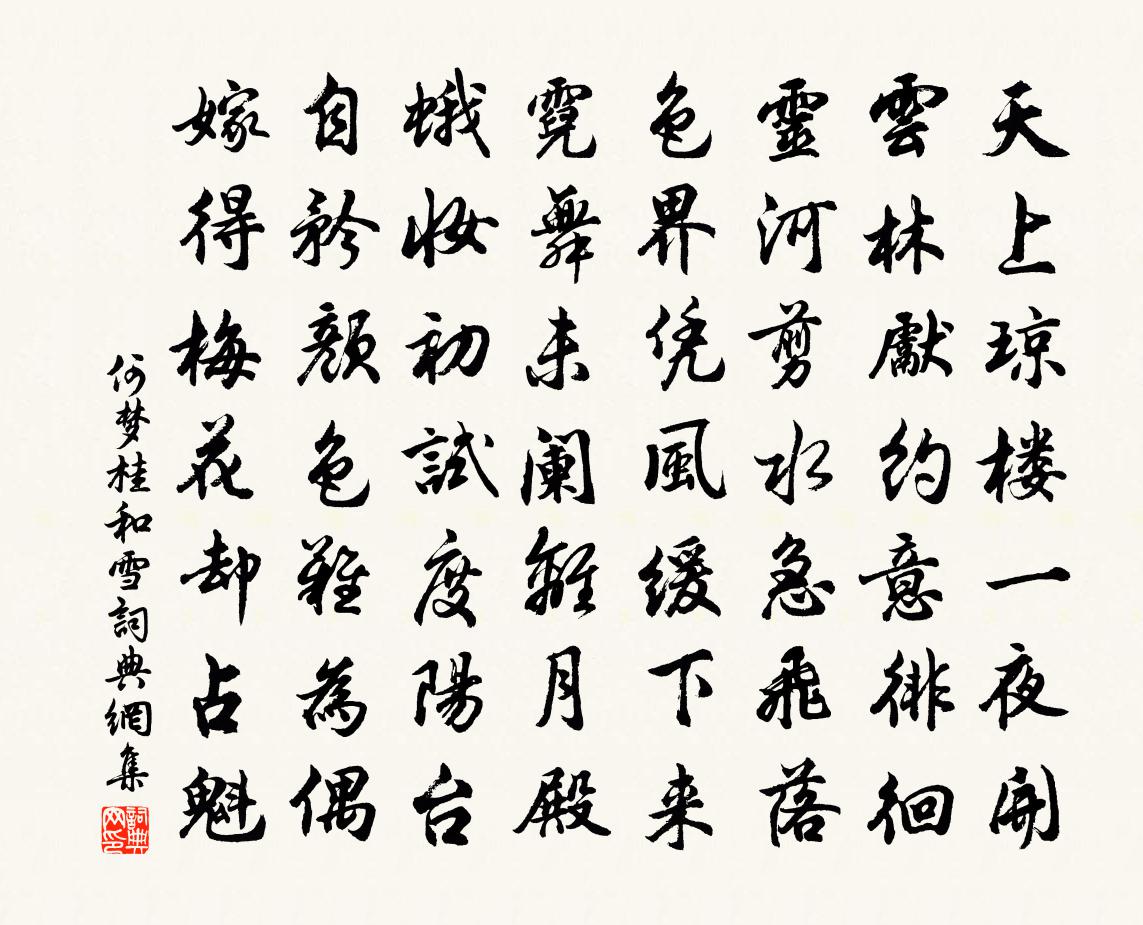 天上琼楼一夜開
雲林獻約意徘徊
靈河剪水急飛落
色界凭風緩下来
霓舞未阑離月殿
蛾妝初試度陽台
自矜顔色難為偶
嫁得梅花却占魁
何梦桂和雪詞典網集
詞典网印